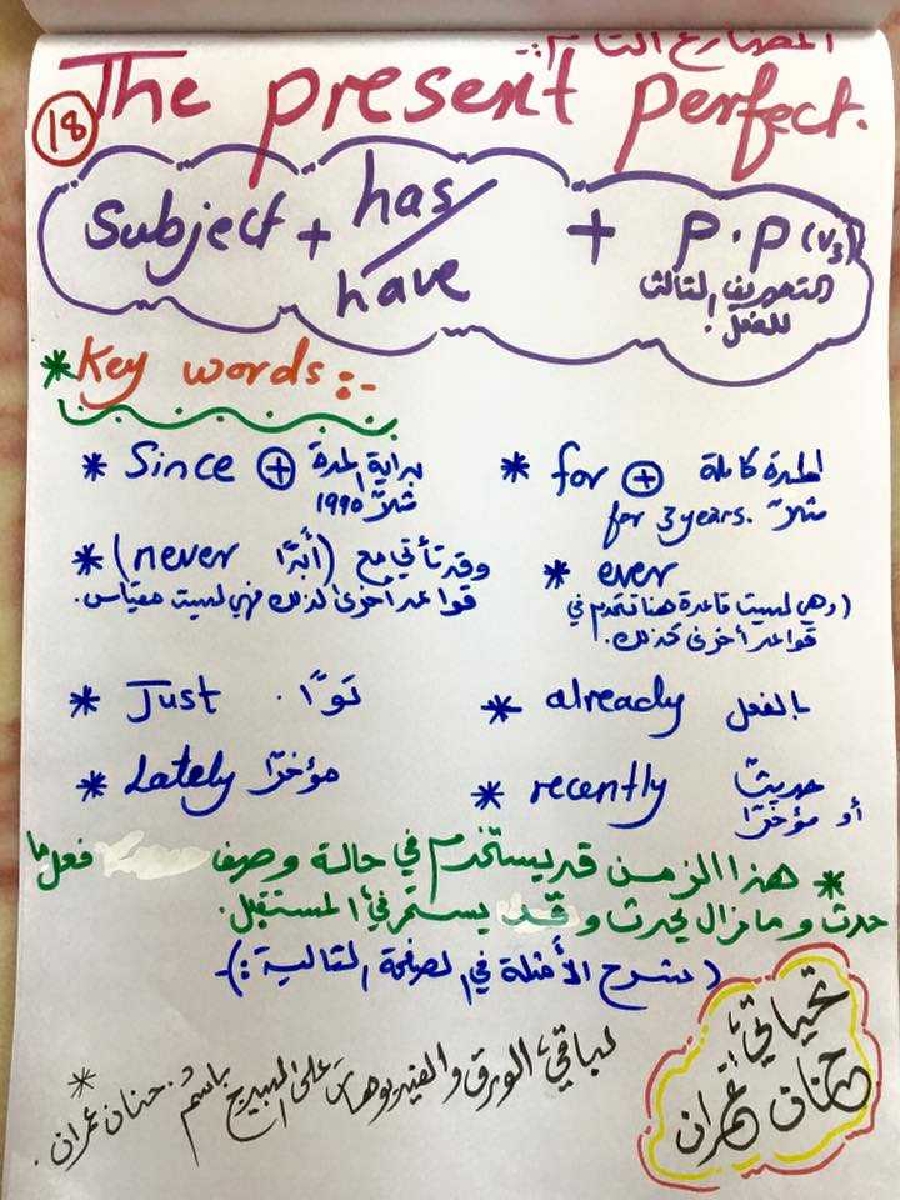 المضارع التام :-
The present perfect.
18
Subject + has/have + P.P (V3)
التصريف الثالث
للفعل.
* Key words :-
* Since + بداية المدة
مثلاً 1990
* for + لمدة كاملة
مثلاً for 3 years.
* (never أبدًا) وقد تأتي مع
قواعد أخرى لذلك فهي ليست مقياس.
* ever
(وهي ليست قاعدة هنا تستخدم في
قواعد أخرى كذلك.
* Just توًّا .
* already بالفعل
* Lately مؤخرًا
* recently حديثًا
أو مؤخرًا
* هذا الزمن قد يستخدم في حالة وصف فعل ما
حدث و مازال يحدث و قد يستمر في المستقبل.
(شرح الأمثلة في الصفحة التالية :)-
تحياتي
حنان عمران
* لباقي الورق والفيديوهات على البيدج باسم د. حنان عمران.